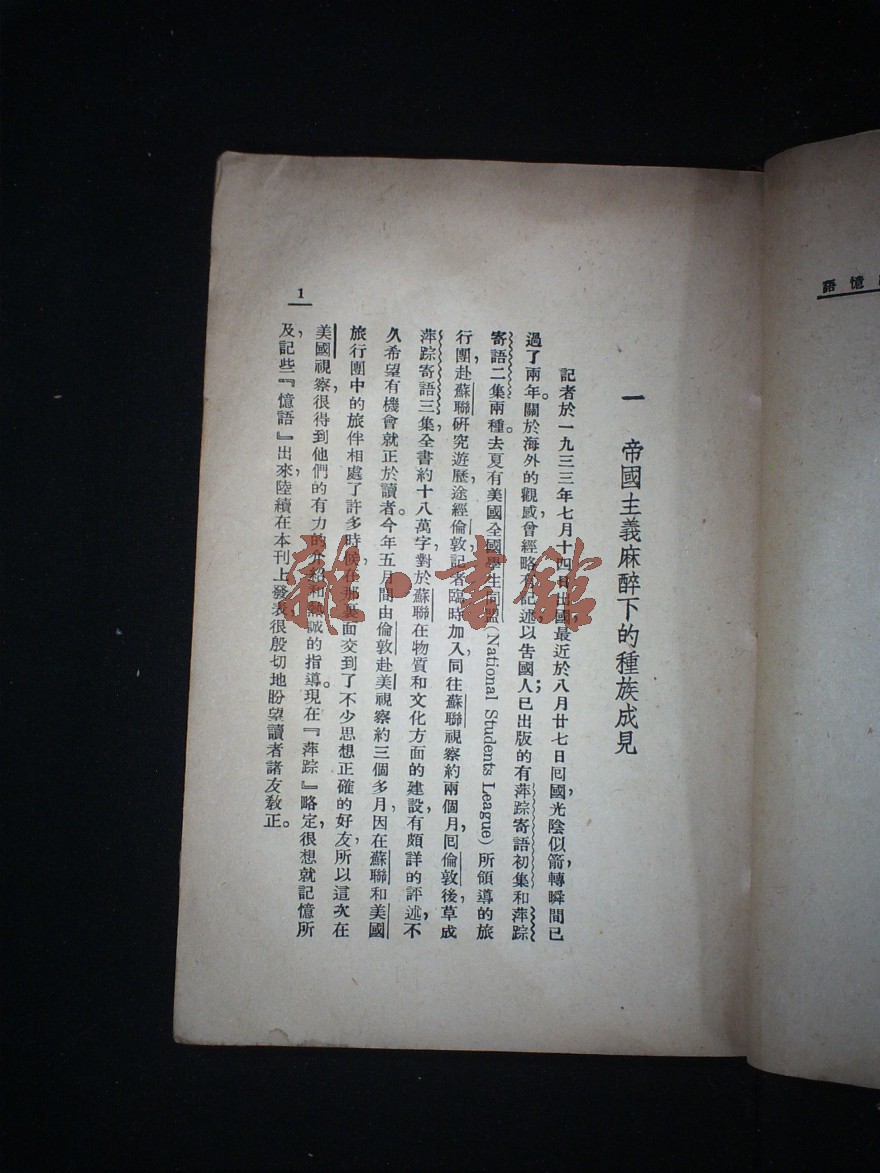 語憶
一 帝國主義麻醉下的種族成見
記者於一九三三年七月十四日出國，最近於八月廿七日囘國，光陰似箭，轉瞬間已
過了兩年。關於海外的觀感曾經略有記述，以告國人；已出版的有萍踪寄語初集和萍踪
寄語二集兩種。去夏有美國全國學生同盟(National Students League)所領導的旅
行團，赴蘇聯硏究遊歷，途經倫敦，記者臨時加入，同往蘇聯視察約兩個月，囘倫敦後，草成
萍踪寄語三集，全書約十八萬字，對於蘇聯在物質和文化方面的建設，有頗詳的評述，不
久希望有機會就正於讀者。今年五月間由倫敦赴美視察約三個多月，因在蘇聯和美國
旅行團中的旅伴相處了許多時候，在那裏面交到了不少思想正確的好友，所以這次在
美國視察，很得到他們的有力的介紹和熱誠的指導。現在『萍踪』略定，很想就記憶所
及，記些『憶語』出來，陸續在本刊上發表，很殷切地盼望讀者諸友敎正。
1
雜·書館